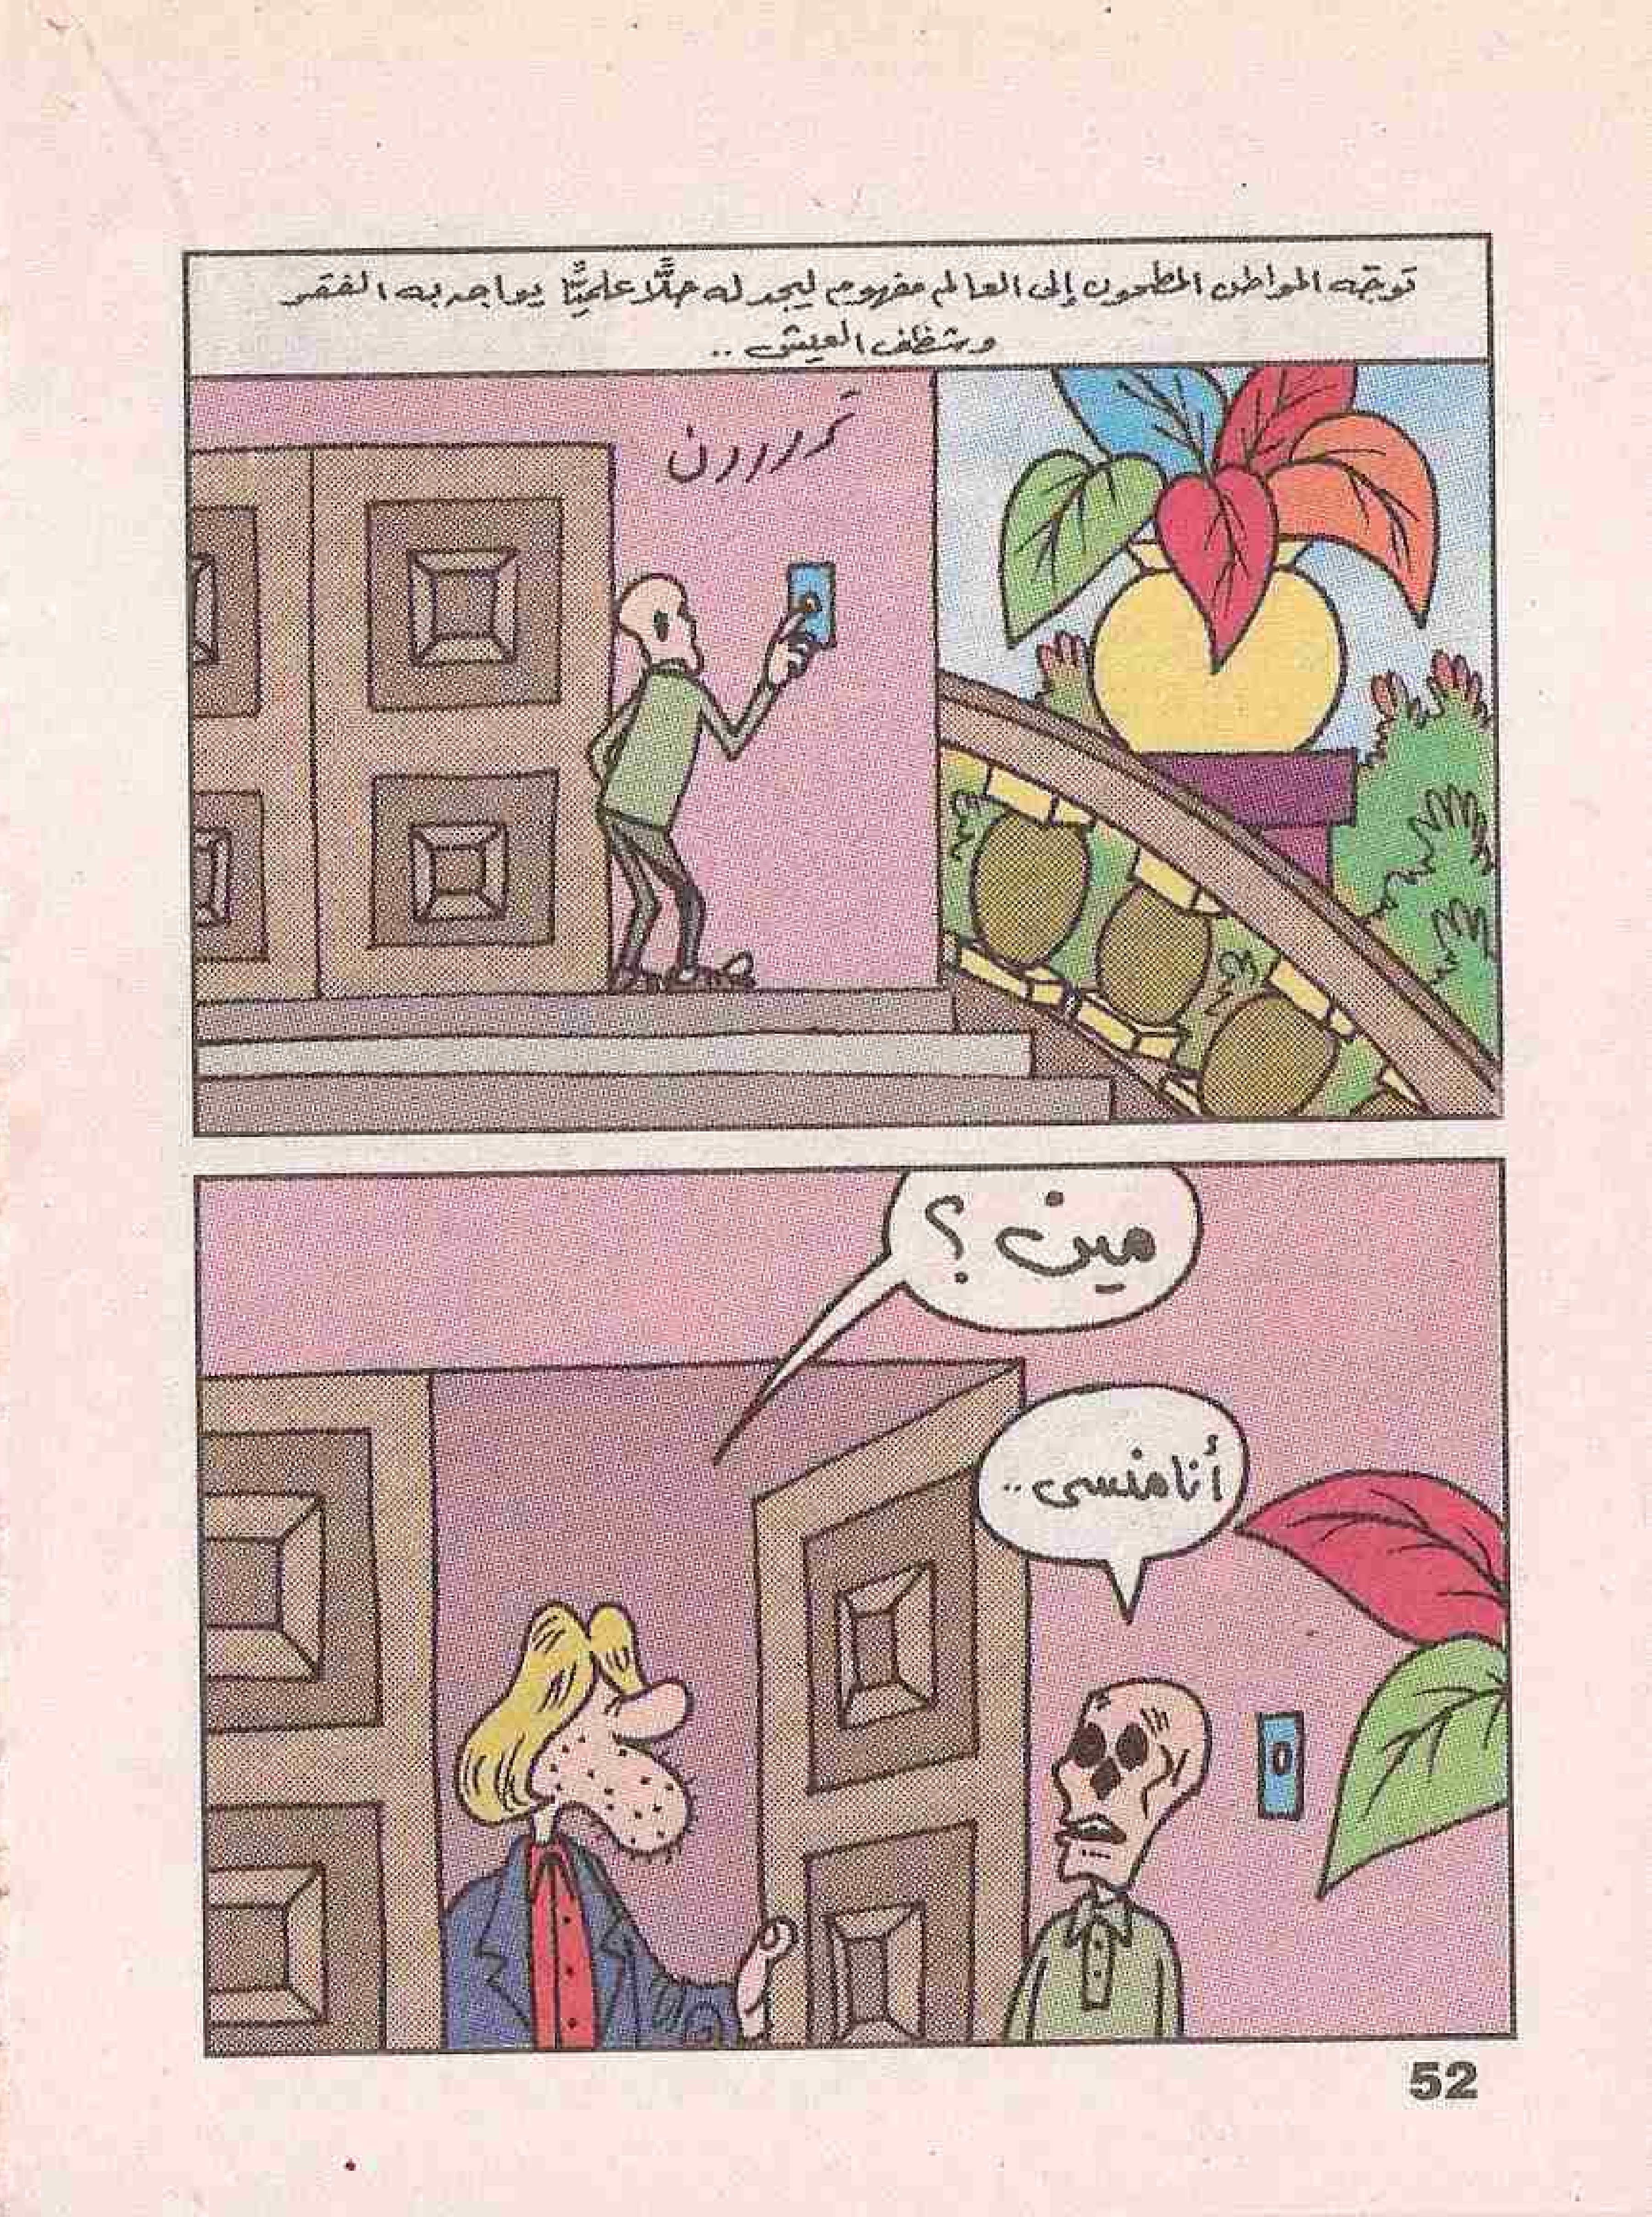 توجّه المواطن المطحون إلى العالم مفهوم ليجد له حلًّا علميًّا يواجه به الفقر
وشظف العيش ..
تررررن
مين ؟
أنا منسى ..
52